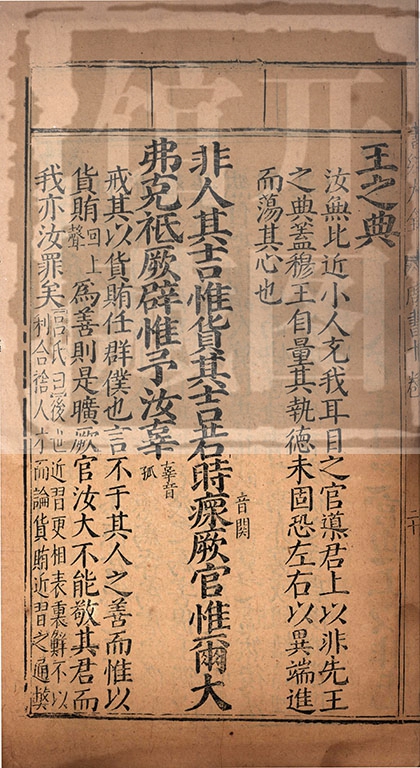 王之典
汝無比近小人充我耳目之官導君上以非先王
之典蓋穆王自量其執德未固恐左右以異端進
而蕩其心也
非人其吉惟貨其吉若時瘝音関厥官惟爾大
弗克祗厥辟惟予汝辜辜音孤
戒其以貨賄任群僕也言不于其人之善而惟以
貨賄回上聲爲善則是曠厥官汝大不能敬其君而
我亦汝罪矣呂氏曰後世近習更相表裏鮮不以
利合捨人才而論貨賄近習之通獘
二十